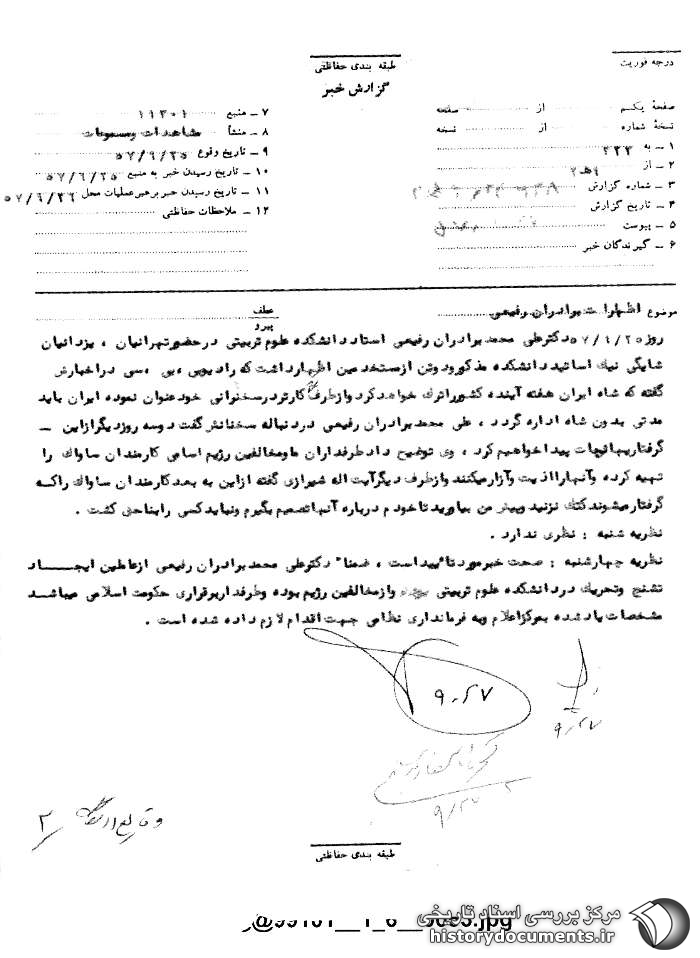 درجه فوریت
طبقه بندی حفاظتی
گزارش خبر
صفحهٔ یکم از صفحه
نسخهٔ شماره از نسخه
۱ ـ به ۲۳۳
۲ ـ از
۳ ـ شماره گزارش
۴ ـ تاریخ گزارش
۵ ـ پیوست
۶ ـ گیرندگان خبر
۷ ـ منبع ۱۱۳۰۱
۸ ـ منشأ مشاهدات ومسموعات
۹ ـ تاریخ وقوع ۵۷/۶/۲۵
۱۰ ـ تاریخ رسیدن خبر به منبع ۵۷/۶/۲۵
۱۱ ـ تاریخ رسیدن خبر برهبرعملیات محل ۵۷/۶/۲۶
۱۲ ـ ملاحظات حفاظتی
موضوع اظهارات برادران رفیعی
عطف
پیرو
روز ۵۷/۶/۲۵ دکترعلی محمدبرادران رفیعی استاددانشکده علوم تربیتی درحضورتهرانیان ، یزدانیان
شایگی نیک اساتیددانشکده مذکورودوتن ازمستخدمین اظهارداشت که رادیوبی ،بی ،سی دراخبارش
گفته که شاه ایران هفته آینده کشورراترک خواهدکردوازطرفی کارتردرسخنرانی خودعنوان نموده ایران باید
مدتی بدون شاه اداره گردد ، علی محمدبرادران رفیعی دردنباله سخنانش گفت دوسه روزدیگرازاین ـ
گرفتاریهانجات پیداخواهیم کرد ، وی توضیح داد طرفداران ماومخالفین رژیم اسامی کارمندان ساواک را
تهیه کرده وآنهارااذیت وآزارمیکنند وازطرف دیگرآیت اله شیرازی گفته ازاین به بعدکارمندان ساواک راکه
گرفتارمیشوندکتک نزنید وپیش من بیاورید تاخودم درباره آنهاتصمیم بگیرم ونبایدکسی رابناحق کشت .
نظریه شنبه : نظری ندارد .
نظریه چهارشنبه : صحت خبرموردتائیداست ، ضمنا" دکترعلی محمدبرادران رفیعی ازعاملین ایجـــاد
تشنج وتحریک دردانشکده علوم تربیتی وازمخالفین رژیم بوده وطرفداربرقراری حکومت اسلامی میباشد
مشخصات یادشده بمرکزاعلام وبه فرمانداری نظامی جهت اقدام لازم داده شده است .
۹/۲۷
۹/۲۷
۹/۲۷
۲
طبقه بندی حفاظتی
مرکز بررسی اسناد تاریخی
historydocuments.ir